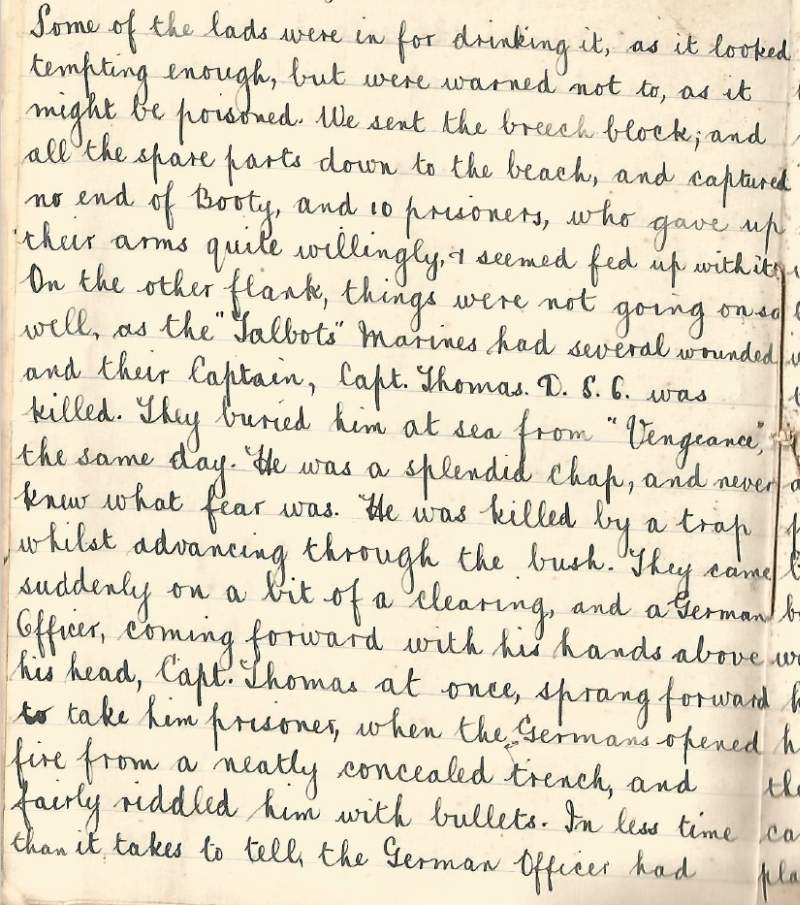 Some of the lads were in for drinking it, as it looked
tempting enough, but were warned not to, as it
might be poisoned. We sent the breech block; and
all the spare parts down to the beach, and captured
no end of Booty, and 10 prisoners, who gave up
their arms quite willingly, & seemed fed up with it.
On the other flank, things were not going on so
well, as the "Talbots" Marines had several wounded
and their Captain, Capt. Thomas. D. S. C. was
killed. They buried him at sea from "Vengeance",
the same day. He was a splendid chap, and never
knew what fear was. He was killed by a trap
whilst advancing through the bush. They came
suddenly on a bit of a clearing, and a German
Officer, coming forward with his hands above
his head, Capt. Thomas at once, sprang forward
to take him prisoner, when the Germans opened
fire from a neatly concealed trench, and
fairly riddled him with bullets. In less time
than it takes to tell, the German Officer had